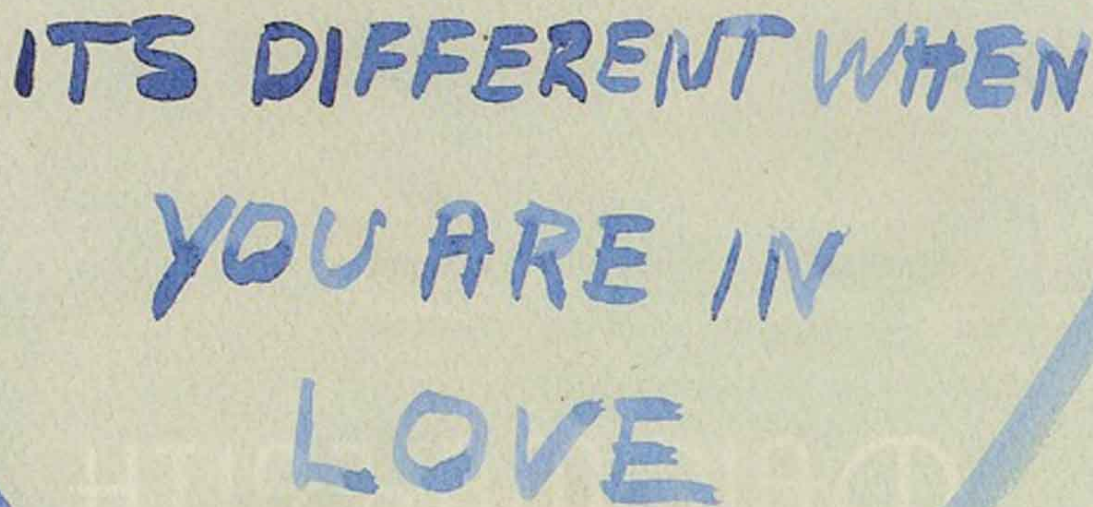 ITS DIFFERENT WHEN
YOU ARE IN
LOVE